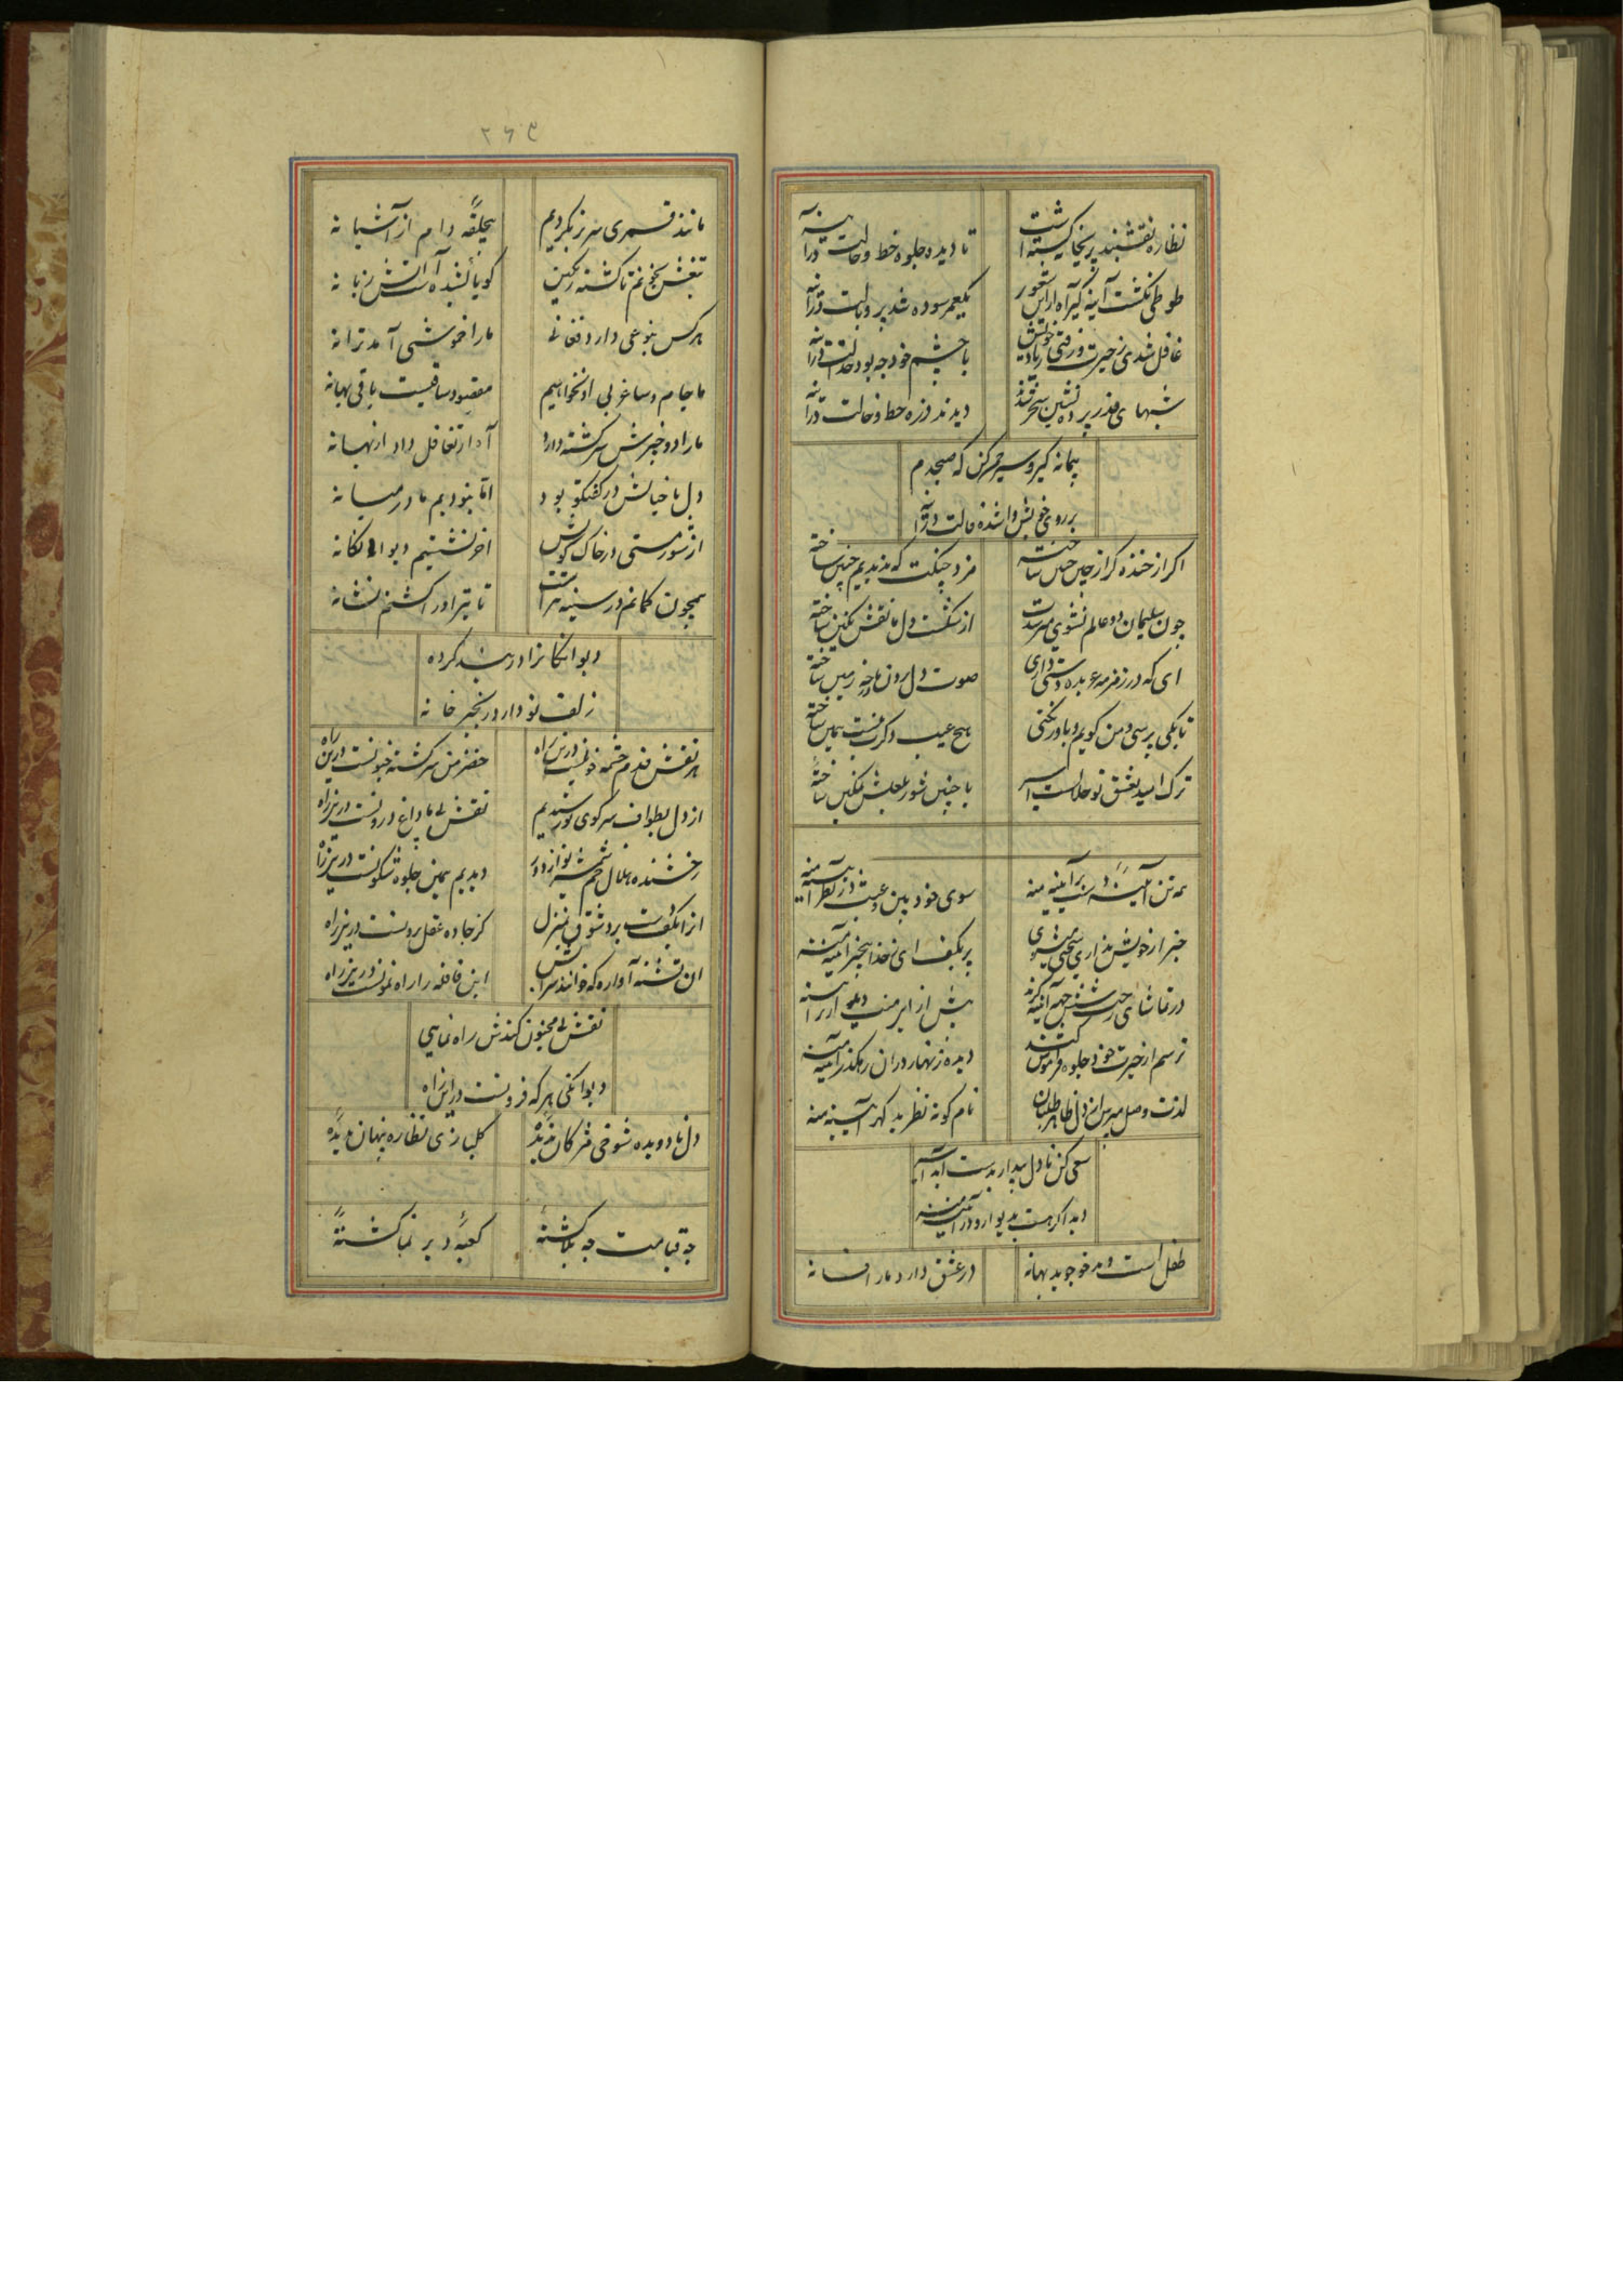 نظاره نقشبند پریخانه کشته است
تا دیده جلوه خط و خالت در آینه
طوطی نکشت آینه
یکعمر سوده شد پر و بالت در آینه
غافل شدی ز حیرت و رفتی ز یاد خویش
با چشم خود چه بود خدالت در آینه
شبهای قدر پرده نشین سحر شدند
دیدند در زه خط و خالت در آینه
پیمانه گیر و سیر چمن کن که صبحدم
بر روی خویش وا شده حالت در آینه
اگر از خنده گر از چین جبین ساخته
مزد جنگت که ندیدیم چنین ساخته
چون سلیمان دو عالم نشوی
از شکست دل ما نقش نگین ساخته
ای که در زمزمه عربده دستی داری
صوت دل بردن ما
تا بکی پرسی و من گویم و باور نکنی
هیچ عیب دگرت نیست همین ساخته
ترک امید بعشق تو حلالست اسیر
با چنین شور بعجلش نمکین ساخته
همه تن
سوی خود بین و عبث در نظر آیینه منه
خبر از خویش نداری
بر کف ای بیخبر آیینه منه
در تماشای رخت شش جهه آیینه گرند
بیش ازاین منت
ترسم از حیرت خود جلوه فراموش کند
دیده زنهار در آن رهگذر آیینه منه
لذت وصل مپرس از دل ظاهر طلبان
نام کوته نظر بد گهر آیینه منه
سعی کن تا دل بیدار بدست آید اسیر
دیده اگر هست بدیوار و در آیینه منه
طفل است و بدخو جوید بهانه
در عشق دارد ما را فسانه
۲۶۳
مانند قمری سر بر نکردیم
بیحلقه دام از آشیانه
تیغش بخونم تا کشته رنگین
گویا کشیده آتش زبانه
هر کس بنوعی دارد فغانی
ما را خموشی آمد ترانه
ما جام و ساغر بی او نخواهیم
مقصود ساقیست باقی بهانه
ما را دو خنجرش سرگشته دارد
آه از تغافل داد از بهانه
دل با خیالش در گفتگو بود
اما نبودیم ما در میانه
از شور مستی در خاک کویش
آخر نشستیم دیوانگانه
همچون کمانم در سینه تیر است
تا تیر او را کشتم نشانه
دیوانگانرا در بند کرده
زلف تو دارد زنجیر خانه
هر نقش قدم چشمه خونیست درین راه
خضر من سرگشته جنونست درین راه
از دل بطواف سر کوی تو رسیدیم
نقش پی ما داغ درونست درین راه
رخشنده هلال خم شمشیر تو از دور
دیدیم همین جلوه شگونست درین راه
از آبکفت برد شوق بمنزل
کز جاده عقل برونست درین راه
آن تشنه آواره که خوانند سرابش
این قافله را راه نمونست درین راه
نقش پی مجنون کندش راه نمایی
دیوانگی هر که فزونست درین راه
دل ما دو دیده شوخی مژگان ندیده
گلبازی نظاره پنهان ندیده
چه قیامت چه بلا گشته
کعبه و دیر نما گشته